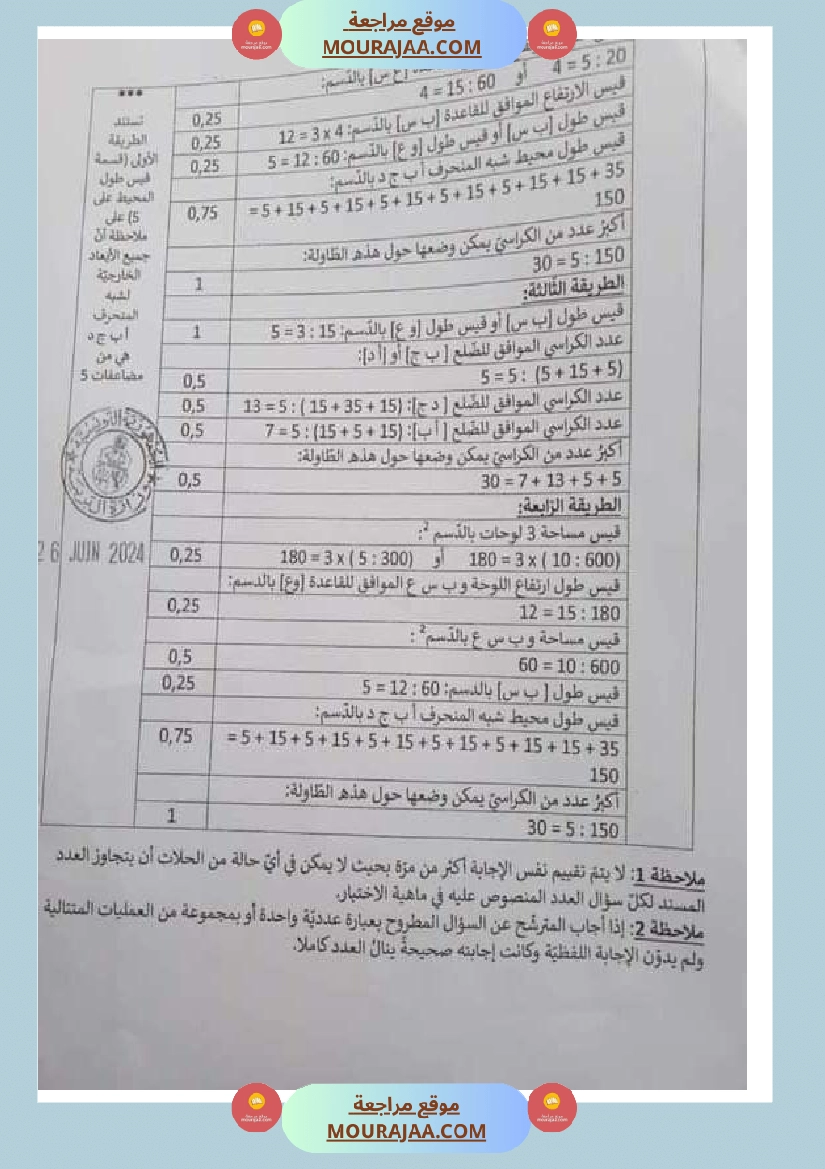 موقع مراجعة
MOURAJAA.COM
بالدّسم:
20 : 5 = 4 أو 60 : 15 = 4
قيس الارتفاع الموافق للقاعدة [ب س] بالدّسم: 4 x 3 = 12
0,25
قيس طول [ب س] أو قيس طول [و ع] بالدّسم: 60 : 12 = 5
0,25
قيس طول محيط شبه المنحرف أ ب ج د بالدّسم:
0,25
35 + 15 + 15 + 5 + 15 + 5 + 15 + 5 + 15 + 5 + 15 + 5 =
0,75
150
أكبرُ عدد من الكراسيّ يمكن وضعها حول هذه الطّاولة:
150 : 5 = 30
1
الطريقة الثّالثة:
قيس طول [ب س] أو قيس طول [و ع] بالدّسم: 15 : 3 = 5
1
عدد الكراسي الموافق للضّلع [ ب ج] أو [أ د]:
(5 + 15 + 5) : 5 = 5
0,5
عدد الكراسي الموافق للضّلع [ د ج]: (15 + 35 + 15 ) : 5 = 13
0,5
عدد الكراسي الموافق للضّلع [ أ ب]: (15 + 5 + 15) : 5 = 7
0,5
أكبرُ عدد من الكراسيّ يمكن وضعها حول هذه الطّاولة:
5 + 5 + 13 + 7 = 30
0,5
الطريقة الرّابعة:
قيس مساحة 3 لوحات بالدّسم ²:
(600 : 10 ) x 3 = 180 أو (300 : 5 ) x 3 = 180
0,25
قيس طول ارتفاع اللوحة و ب س ع الموافق للقاعدة [وع] بالدسم:
180 : 15 = 12
0,25
قيس مساحة و ب س ع بالدّسم² :
600 : 10 = 60
0,5
قيس طول [ ب س] بالدسم: 60 : 12 = 5
0,25
قيس طول محيط شبه المنحرف أ ب ج د بالدّسم:
35 + 15 + 15 + 5 + 15 + 5 + 15 + 5 + 15 + 5 + 15 + 5 =
0,75
150
أكبرُ عدد من الكراسيّ يمكن وضعها حول هذه الطّاولة:
150 : 5 = 30
1
***
تستند
الطريقة
الأولى (قسمة
قيس طول
المحيط على
5) على
ملاحظة أنّ
جميع الأبعاد
الخارجيّة
لشبه
المنحرف
أ ب ج د
هي من
مضاعفات 5
26 JUIN 2024
ملاحظة 1: لا يتمّ تقييم نفس الإجابة أكثر من مرّة بحيث لا يمكن في أيّ حالة من الحلات أن يتجاوز العدد
المسند لكلّ سؤال العدد المنصوص عليه في ماهية الاختبار.
ملاحظة 2: إذا أجاب المترشّح عن السؤال المطروح بعبارة عدديّة واحدة أو بمجموعة من العمليات المتتالية
ولم يدوّن الإجابة اللفظيّة وكانت إجابته صحيحةً ينالُ العدد كاملا.
موقع مراجعة
MOURAJAA.COM